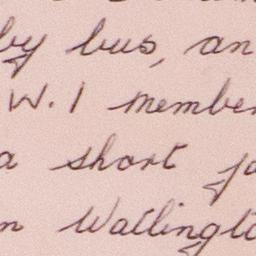 by bus, an
W.I member
a short
Watlingto